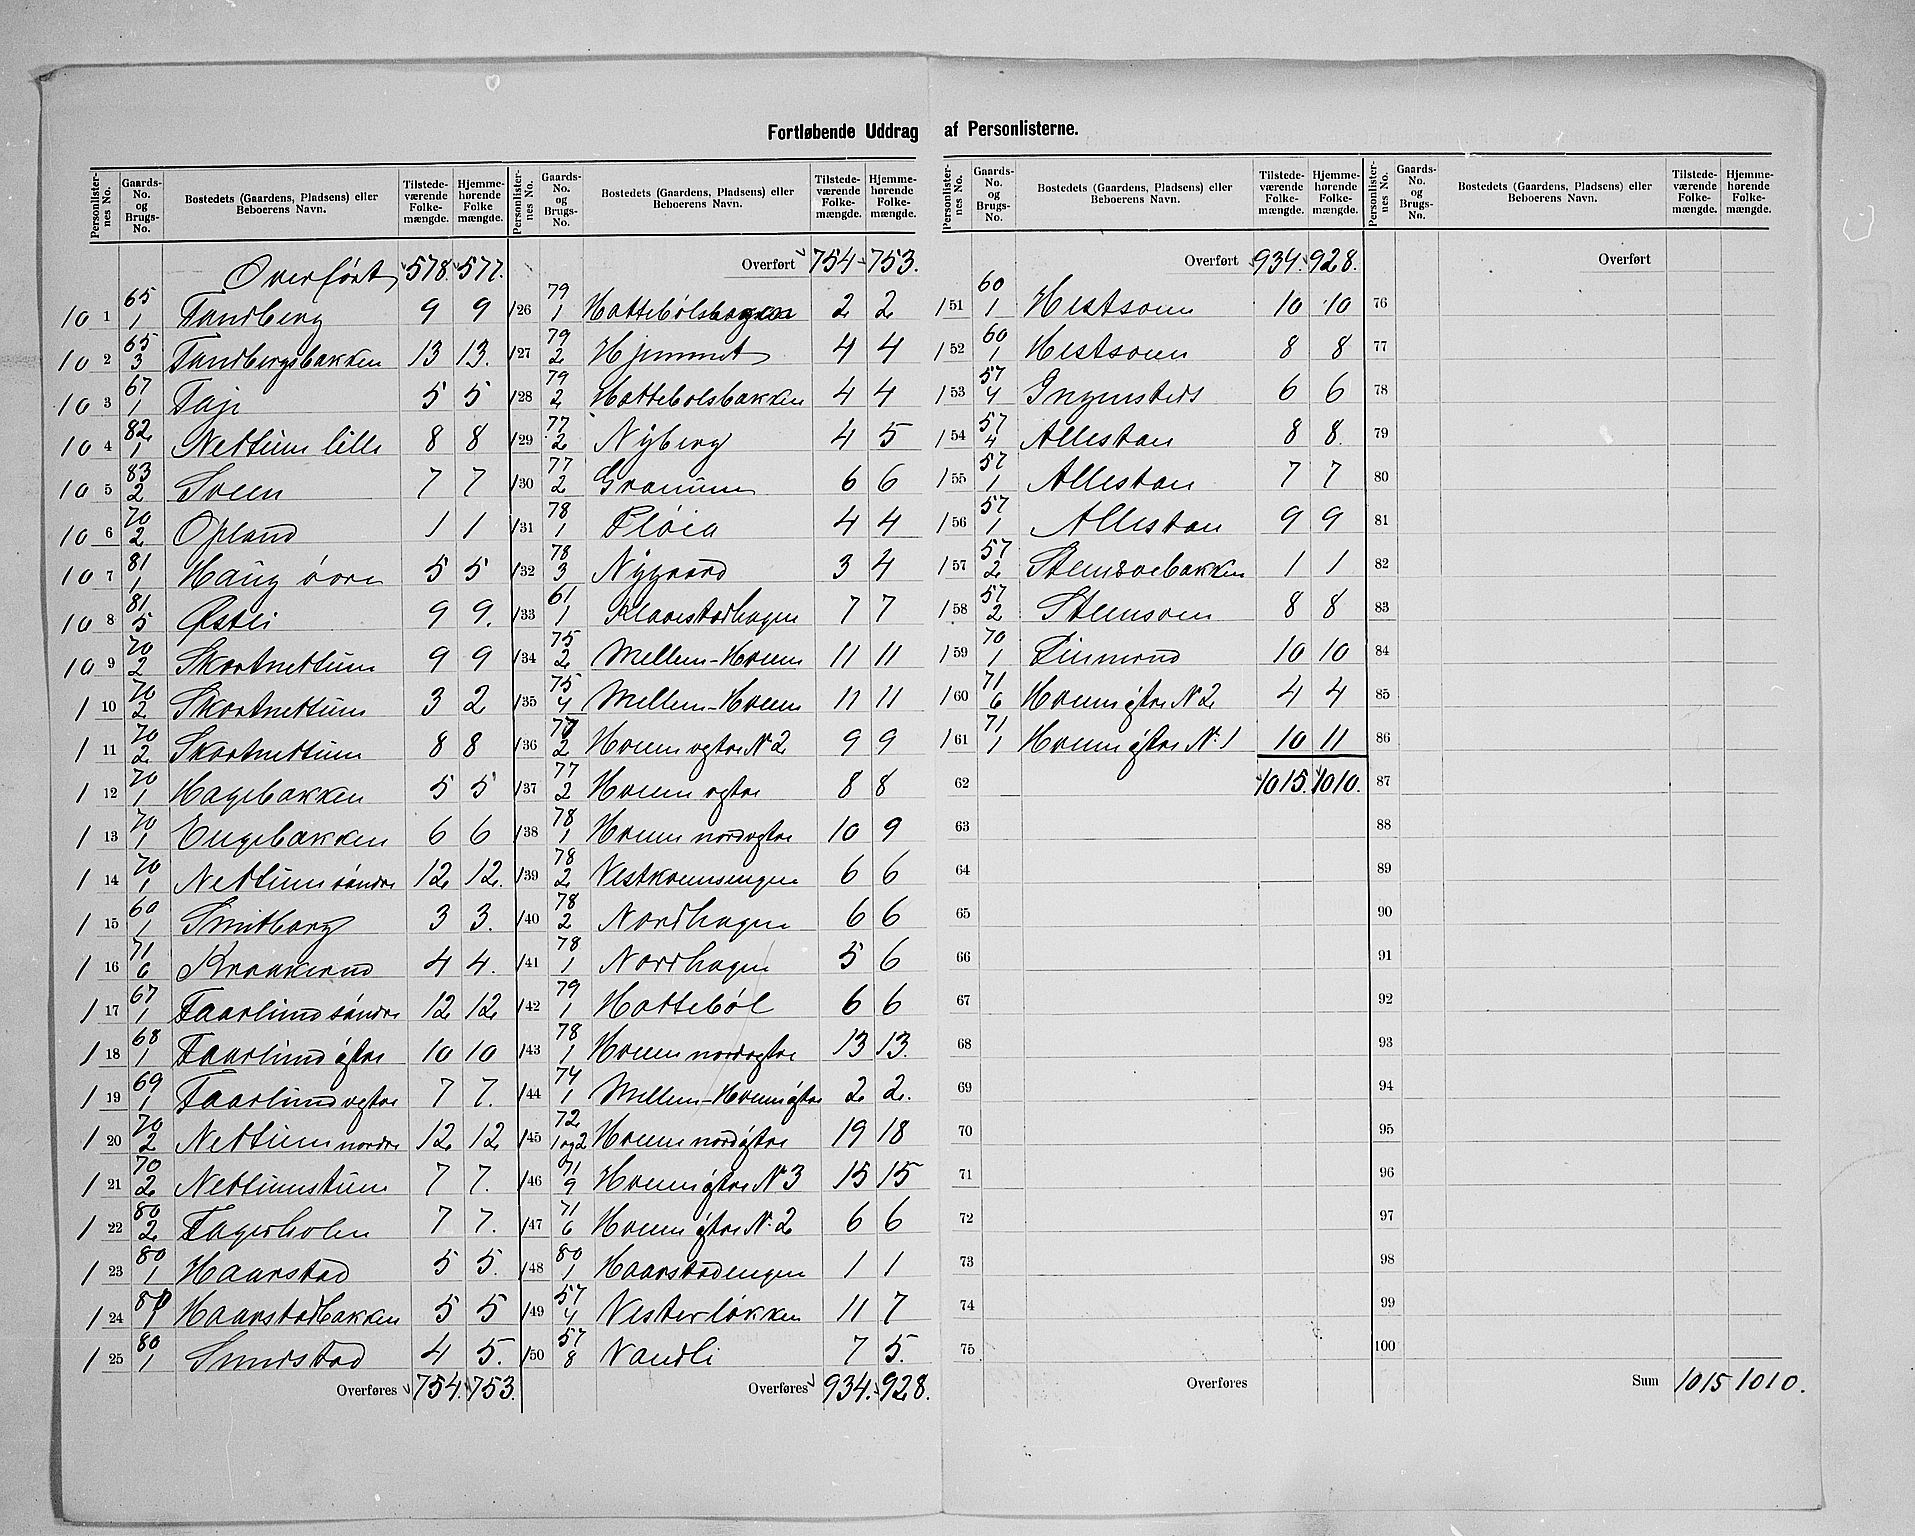 Fortløbende Uddrag af Personlisterne.
Personlisternes No. | Gaards-No. og Brugs-No. | Bostedets (Gaardens, Pladsens) eller Beboerens Navn. | Tilstedeværende Folkemængde. | Hjemmehørende Folkemængde.
Overført 578. 577.
101 65/1 Tandberg 9 9
102 65/3 Tandbergsbakken 13 13.
103 67/1 Taje 5 5
104 82/1 Nettum lille 8 8
105 83/2 Sveen 7 7
106 70/2 Opland 1 1
107 81/1 Haug övre 5 5
108 81/5 Østli 9 9.
109 70/2 Skortnettum 9 9
110 70/2 Skortnettum 3 2
111 70/2 Skortnettum 8 8
112 70/1 Hagebakken 5 5
113 70/1 Engebakken 6 6
114 70/1 Nettum söndre 12 12.
115 60/1 Smitborg 3 3.
116 71/6 Kraakerud 4 4.
117 67/1 Faarlund söndre 12 12
118 68/1 Faarlund östre 10 10
119 69/1 Faarlund vestre 7 7.
120 70/2 Nettum nordre 12 12
121 70/2 Nettumstuen 7 7.
122 80/2 Fagerholen 7 7.
123 80/1 Haarstad 5 5.
124 Haarstadbakken 5 5
125 80/1 Smedstad 4 5.
Overføres 754. 753.
Personlisternes No. | Gaards-No. og Brugs-No. | Bostedets (Gaardens, Pladsens) eller Beboerens Navn. | Tilstedeværende Folkemængde. | Hjemmehørende Folkemængde.
Overført 754 753.
126 79/1 2 2
127 79/2 Hjemmet 4 4
128 79/2 Hattebölsbakken 4 4
129 77/2 Nyberg 4 5
130 77/2 Granum 6 6
131 78/1 Pløia 4 4
132 78/3 Nygaard 3 4
133 61/1 Klovestadhagen 7 7
134 75/2 Mellem-Hvem 11 11
135 75/4 Mellem-Hvem 11 11
136 77/2 Hvem vestre No 2 9 9
137 77/2 Hvem vestre 8 8
138 78/1 Hvem nordvestre 10 9
139 78/2 Vesthvemsengen 6 6
140 78/2 Nordhagen 6 6
141 78/1 Nordhagen 5 6
142 79/1 Hatteböl 6 6
143 78/1 Hvem nordvestre 13 13.
144 74/1 Mellem-Hvem östre 2 2.
145 72/1 og 2 Hvem nordöstre 19 18
146 71/9 Hvem östre No 3 15 15
147 71/6 Hvem östre No. 2 6 6
148 80/1 Haarstadengen 1 1
149 57/4 Vesterløkken 11 7
150 57/8 Vandli 7 5.
Overføres 934. 928.
Personlisternes No. | Gaards-No. og Brugs-No. | Bostedets (Gaardens, Pladsens) eller Beboerens Navn. | Tilstedeværende Folkemængde. | Hjemmehørende Folkemængde.
Overført 934. 928.
151 60/1 Hestsven 10 10
152 60/1 Hestsven 8 8
153 57/4 Ingensteds 6 6
154 57/4 Allestan 8 8.
155 57/1 Allestan 7 7
156 57/1 Allestan 9 9
157 57/2 Stensvebakken 1 1
158 57/2 Stensven 8 8
159 70/1 Linnerud 10 10
160 71/6 Hvem östre No 2 4 4
161 71/1 Hvem östre No. 1 10 11
62 1015. 1010.
63
64
65
66
67
68
69
70
71
72
73
74
75
Overføres
Personlisternes No. | Gaards-No. og Brugs-No. | Bostedets (Gaardens, Pladsens) eller Beboerens Navn. | Tilstedeværende Folkemængde. | Hjemmehørende Folkemængde.
Overført
76
77
78
79
80
81
82
83
84
85
86
87
88
89
90
91
92
93
94
95
96
97
98
99
100
Sum 1015 1010.